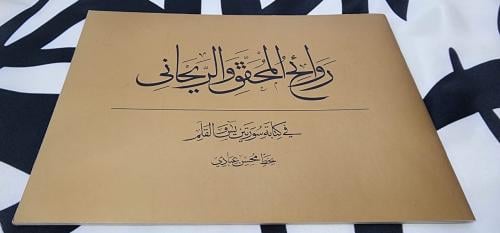 روائع المحقق والريحاني
في كتابة سورتين يس والقلم
بخط محسن عبادي